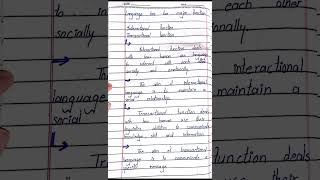 Language has two major function
Interactional function
Transactional function
Interactional function deals
with how human use language
to interact with each other
socially and emotionally
The aim of interactional
language is to maintain a
social relationship.
Transactional function deals
with how humans use their
linguistic abilities to communicate
knowledge skill and information.
The aim of transactional
language is to communicate a
message.